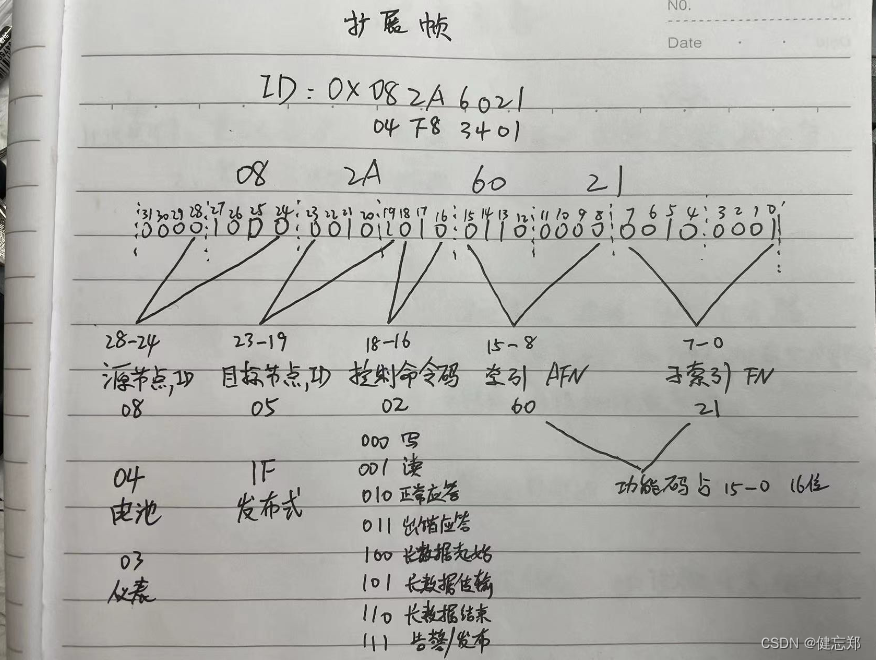 NO.
Date
扩展帧
ID:0X082A6021
04 F8 3401
08 2A 60 21
31 30 29 28 27 26 25 24 23 22 21 20 19 18 17 16 15 14 13 12 11 10 9 8 7 6 5 4 3 2 1 0
0000 1000 0010 1010 0110 0000 0010 0001
28-24 23-19 18-16 15-8 7-0
源节点,ID 目标节点,ID 控制命令码 索引 AFN 子索引 FN
08 05 02 60 21
000 写
04 1F 001 读
电池 发布式 010 正常应答 功能码占 15-0 16位
011 出错应答
03 100 长数据起始
仪表 101 长数据传输
110 长数据结束
111 告警/发布
CSDN @健忘郑